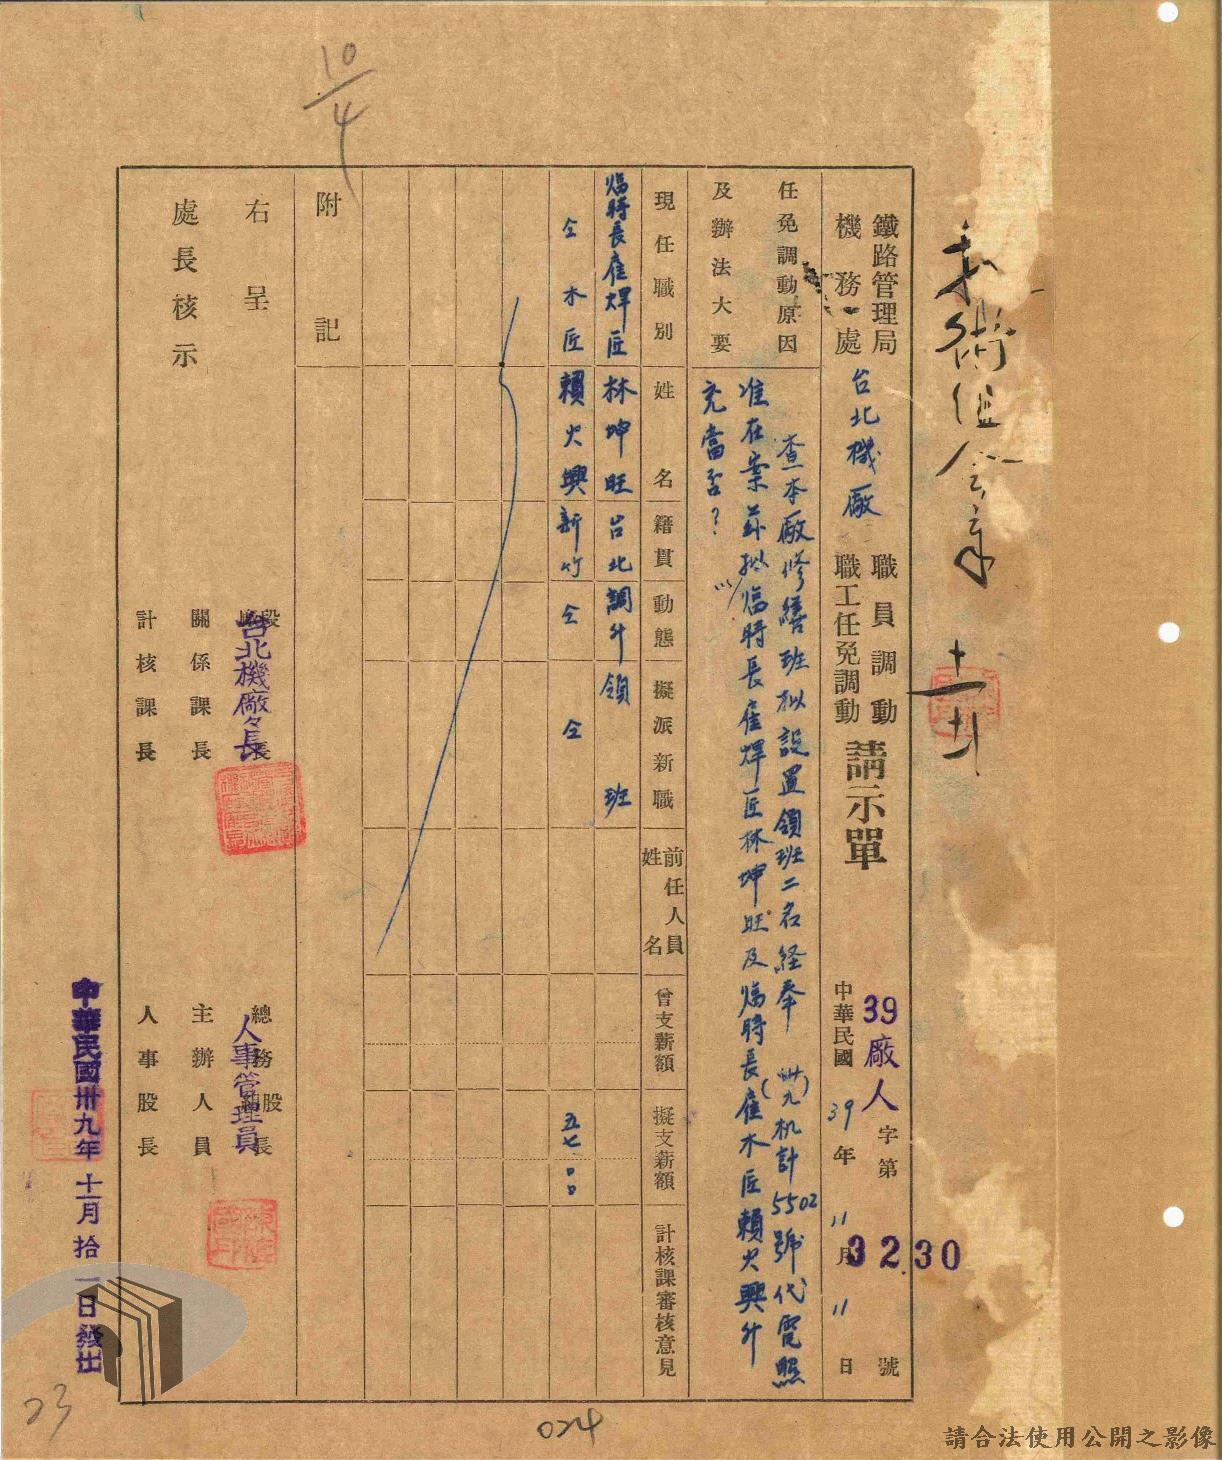 10/4
術組
十一
鐵路管理局
機務處
台北機廠
職員調動
職工任免調動
請示單
39廠人字第3230號
中華民國39年11月11日
任免調動原因
及辦法大要
查本廠修繕班拟設置領班二名経奉(卅九)机計5502號代電照
准在案茲拟臨時長雇焊匠林坤旺及臨時長雇木匠賴火興升
充當否？
現任職別
姓名
籍貫
動態
擬派新職
前任人員姓名
曾支薪額
擬支薪額
計核課審核意見
臨時長雇焊匠 林坤旺 台北 調升 領班
仝 木匠 賴火興 新竹 仝 仝 五七.00
附記
右呈
處長核示
台北機廠々長
關係課長
計核課長
總務股長
人事管理員
主辦人員
人事股長
中華民國卅九年十一月拾一日發出
23
024
請合法使用公開之影像